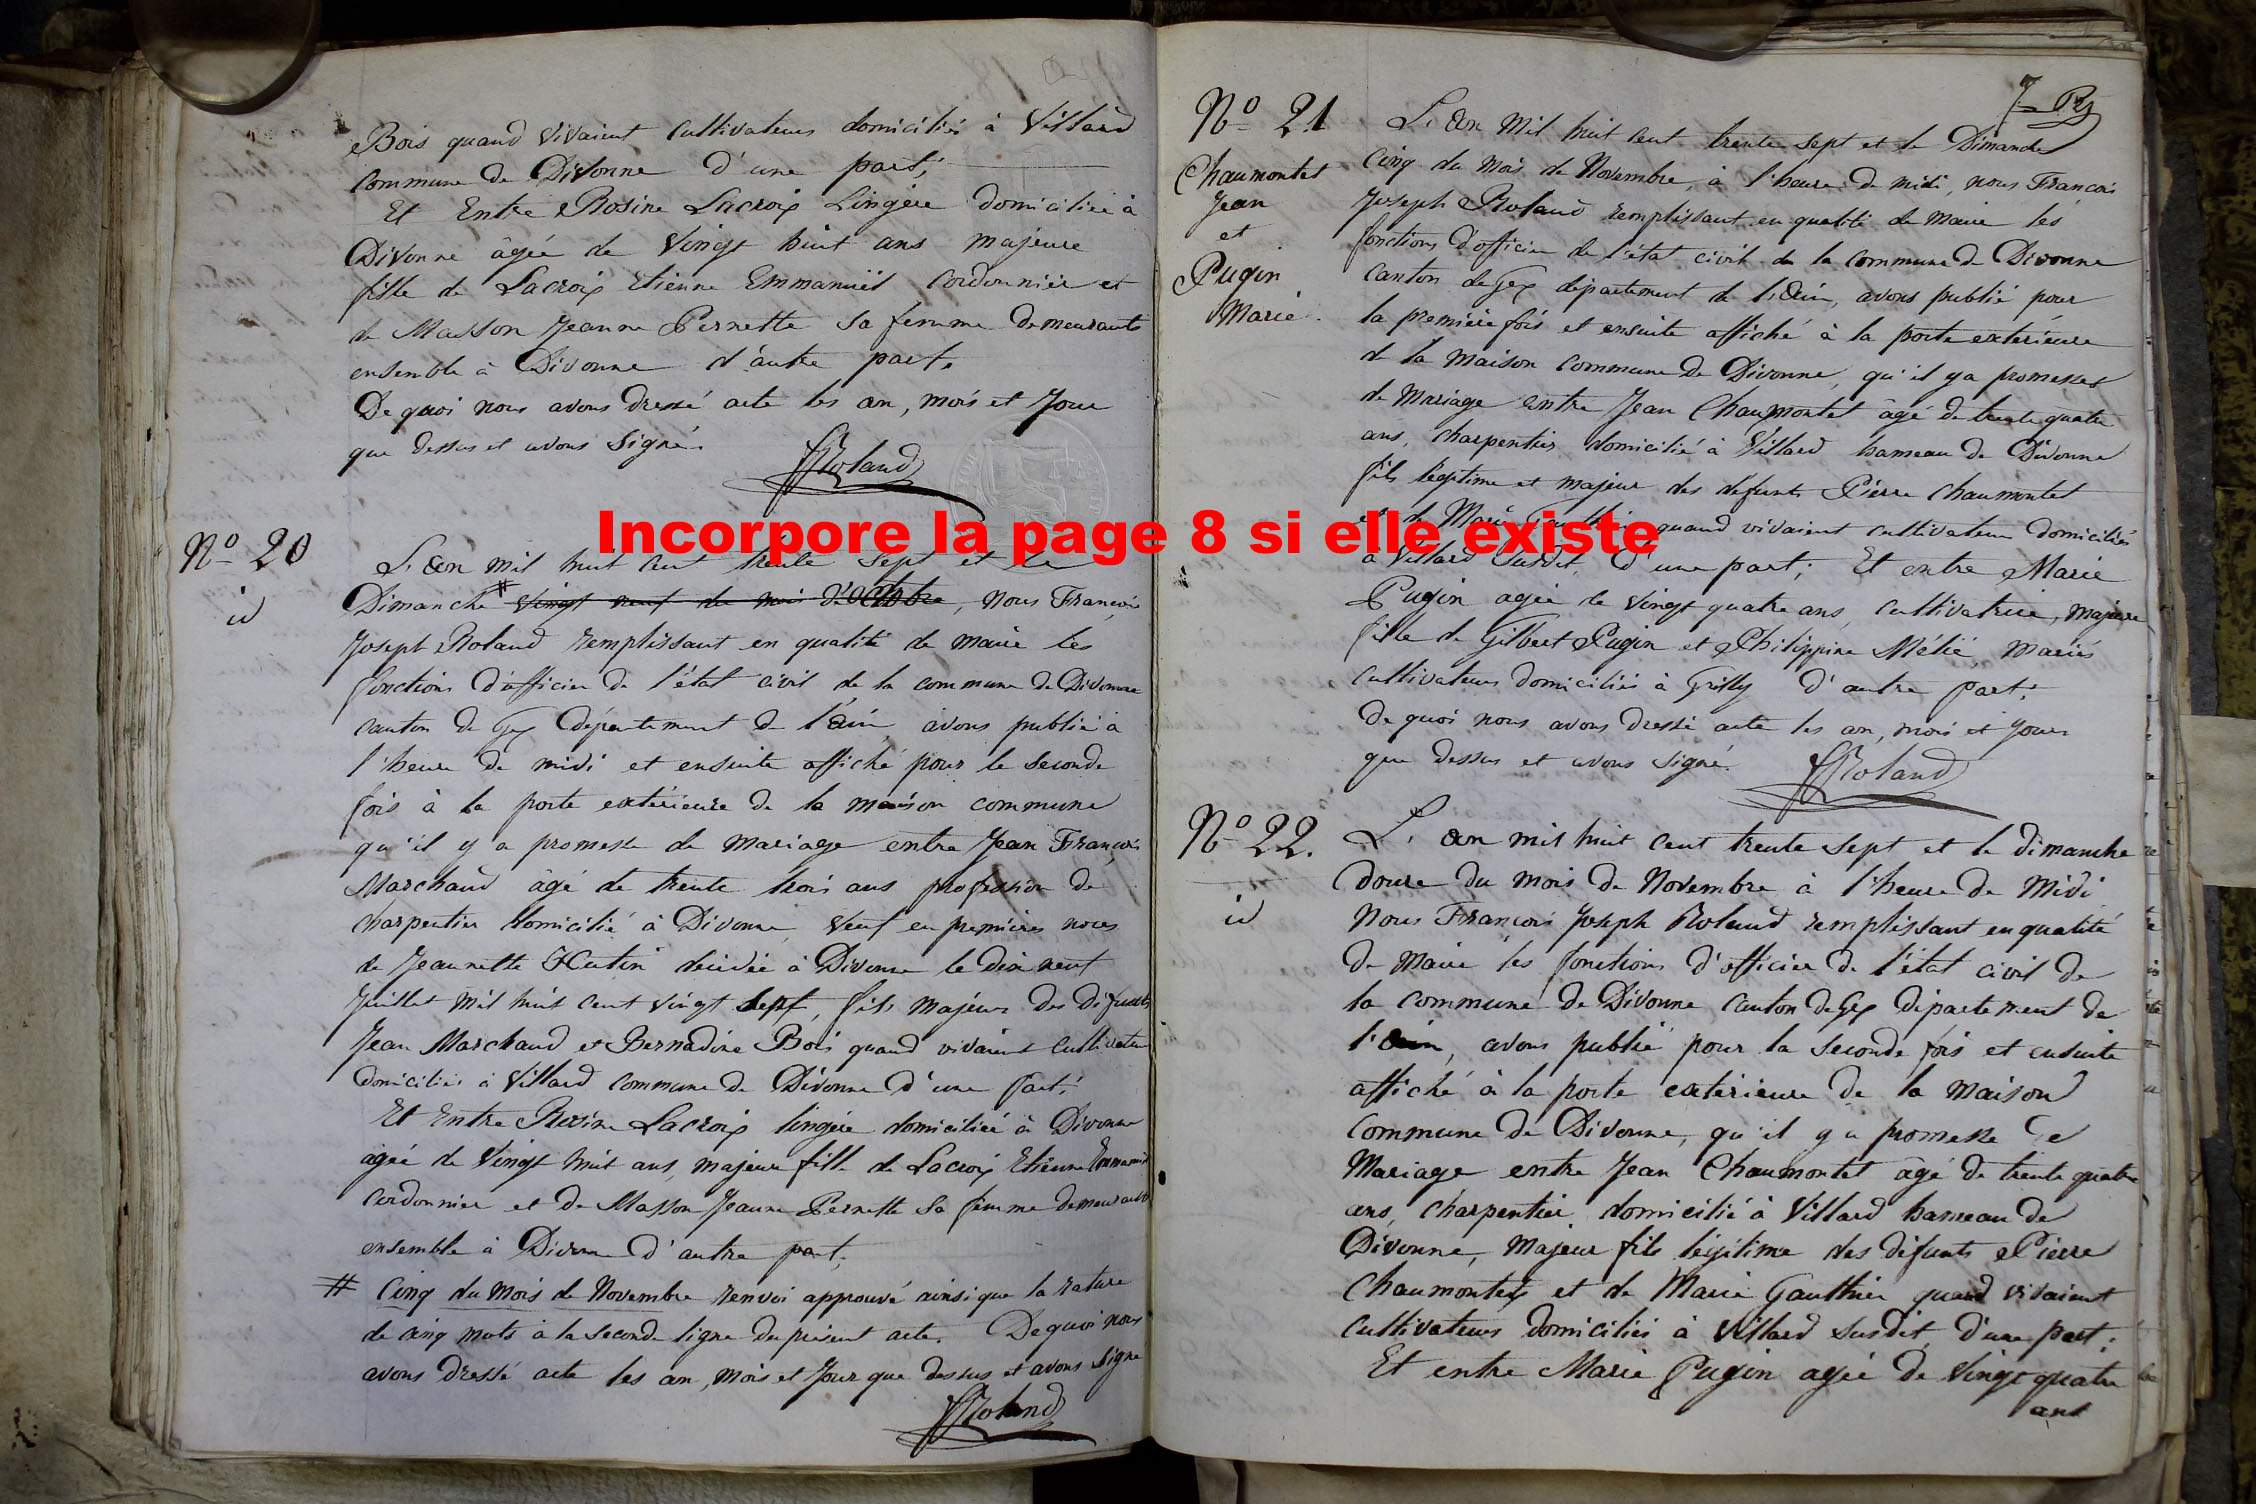 Bois quand vivaient cultivateurs domiciliés à Villard
commune de Divonne d'une part;
Et Entre Rosine Lacroix Lingère domiciliée à
Divonne âgée de vingt huit ans majeure
fille de Lacroix Etienne Emmanuël Cordonnier et
de Masson Jeanne Pernette sa femme demeurants
ensemble à Divonne d'autre part.
De quoi nous avons dressé acte les an, mois et jour
que dessus et avons signé.
FJRoland
No 20
id
L'an mil huit cent trente sept et le
Dimanche # vingt neuf du mois d'octobre, nous François
Joseph Roland remplissant en qualité de maire les
fonctions d'officier de l'état civil de la commune de Divonne
canton de Gex département de l'ain, avons publié à
l'heure de midi et ensuite affiché pour le seconde
fois à la porte extérieure de la maison commune
qu'il y a promesse de mariage entre Jean François
Marchand âgé de trente trois ans profession de
charpentier domicilié à Divonne, veuf en premières noces
de Jeannette Hutin décédée à Divonne le dix neuf
Juillet mil huit cent vingt sept, fils majeur des défunts
Jean Marchand et Bernadine Bois quand vivaient cultivateurs
domiciliés à Villard commune de Divonne d'une part;
Et Entre Rosine Lacroix lingère domiciliée à Divonne
agée de vingt huit ans, majeure fille de Lacroix Etienne Emmanuel
cordonnier et de Masson Jeanne Pernette sa femme demeurants
ensemble à Divonne d'autre part;
# Cinq du mois de Novembre renvoi approuvé ainsi que la rature
de cinq mots à la seconde ligne du présent acte. De quoi nous
avons dressé acte les an, mois et jour que dessus et avons signé
FJRoland
7
No 21
Chaumontet
Jean
et
Pugin
Marie
L'an mil huit cent trente sept et le Dimanche
cinq du mois de Novembre, à l'heure de midi, nous François
Joseph Roland remplissant en qualité de maire les
fonctions d'officier de l'état civil de la commune de Divonne
canton de Gex département de l'Ain, avons publié pour
la première fois et ensuite affiché à la porte extérieure
de la maison commune de Divonne, qu'il y a promesses
de mariage entre Jean Chaumontet âgé de trente quatre
ans, charpentier domicilié à Villard hameau de Divonne
fils légitime et majeur des défunts Pierre Chaumontet
et de Marie Gauthier quand vivaient cultivateurs domiciliés
Incorpore la page 8 si elle existe
à Villard susdit, d'une part; Et entre Marie
Pugin agée de vingt quatre ans, cultivatrice, majeure
fille de Gilbert Pugin et Philippine Mélié, mariés
cultivateurs domiciliés à Grilly d'autre part;
De quoi nous avons dressé acte les an, mois et jour
que dessus et avons signé.
FJRoland
No 22.
id
L'an mil huit cent trente sept et le dimanche
douze du mois de Novembre à l'heure de midi
Nous François Joseph Roland remplissant en qualité
de maire les fonctions d'officier de l'état civil de
la commune de Divonne canton de Gex département de
l'ain, avons publié pour la seconde fois et ensuite
affiché à la porte extérieure de la maison
commune de Divonne, qu'il y a promesse de
Mariage entre Jean Chaumontet âgé de trente quatre
ans, charpentier domicilié à Villard hameau de
Divonne, Majeur fils légitime des défunts Pierre
Chaumontet et de Marie Gauthier quand vivaient
cultivateurs domiciliés à Villard susdit, d'une part;
Et entre Marie Pugin agée de vingt quatre
ans